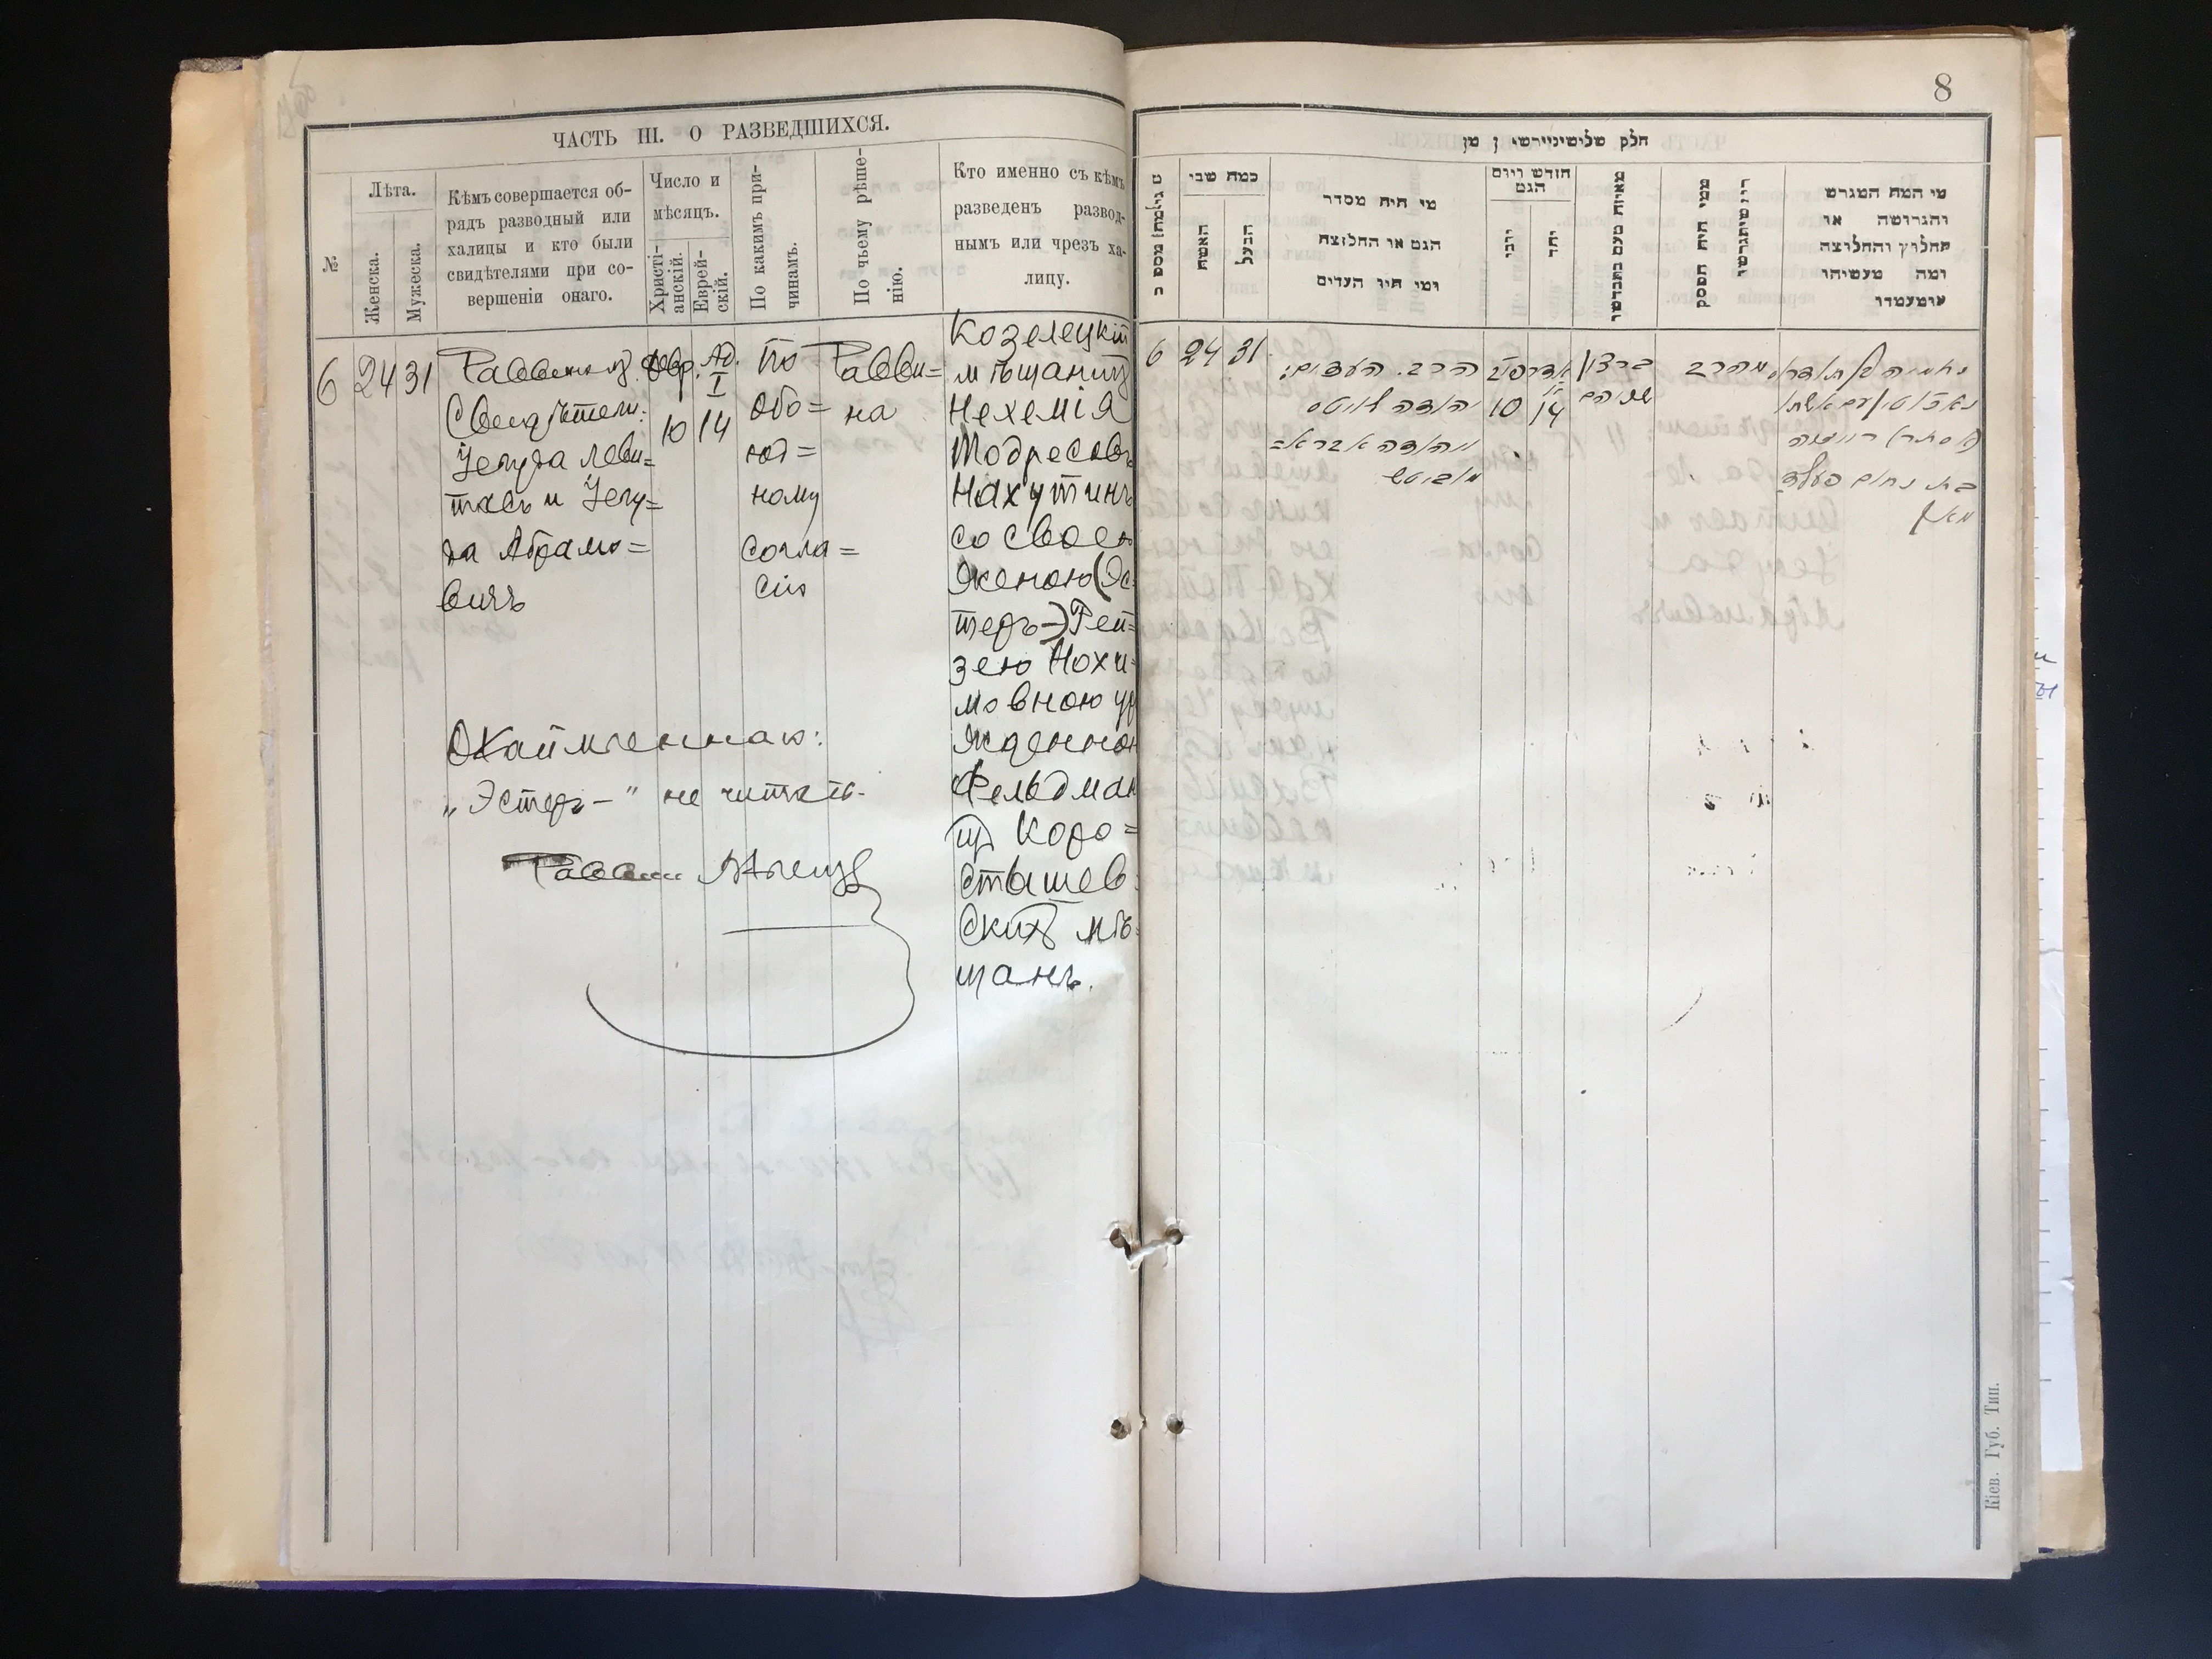 8
ЧАСТЬ III. О РАЗВЕДШИХСЯ.
№
Лѣта.
Женска.
Мужеска.
Кѣмъ совершается об-
рядъ разводный или
халицы и кто были
свидѣтелями при со-
вершеніи онаго.
Число и
мѣсяцъ.
Христі-
анскій.
Еврей-
скій.
По какимъ при-
чинамъ.
По чьему рѣше-
нію.
Кто именно съ кѣмъ
разведенъ развод-
нымъ или чрезъ ха-
лицу.
6
24
31
Раввинъ.
Свидѣтели:
Іегуда Леви=
тасъ и Іегу=
да Абрамо=
вичъ
Февр.
10
Ад.
I
14
По
обо=
юд=
ному
согла=
сію
Рабви=
на
Козелецкій
мѣщанинъ
Нехемія
Тодресовъ
Нахутинъ
со своею
женою (Эс=
теръ-) Рей=
зею Нохи=
мовною ур
жденною
Фельдман
изъ Коро=
сташев=
скихъ мѣ=
щанъ.
Окаймленное:
„Эстеръ-" не читать.
Раввин
חלק שלישי מן
כמה שני
האשה
הבעל
מי היה מסדר
הגט או החלוצה
ומי היו העדים
חודש ויום
הגט
ממי היה הפסק
מי המה המגרש
והגרושה או
החלוץ והחלוצה
ומה מעשיהו
6
24
31
הרב. העדים:
יהודה לוויטס
ויהודה אברא=
מוביטש
10
14
ברצון
שניהם
מהרב
בת נחום פעלד
מאן
Кіев. Губ. Тип.